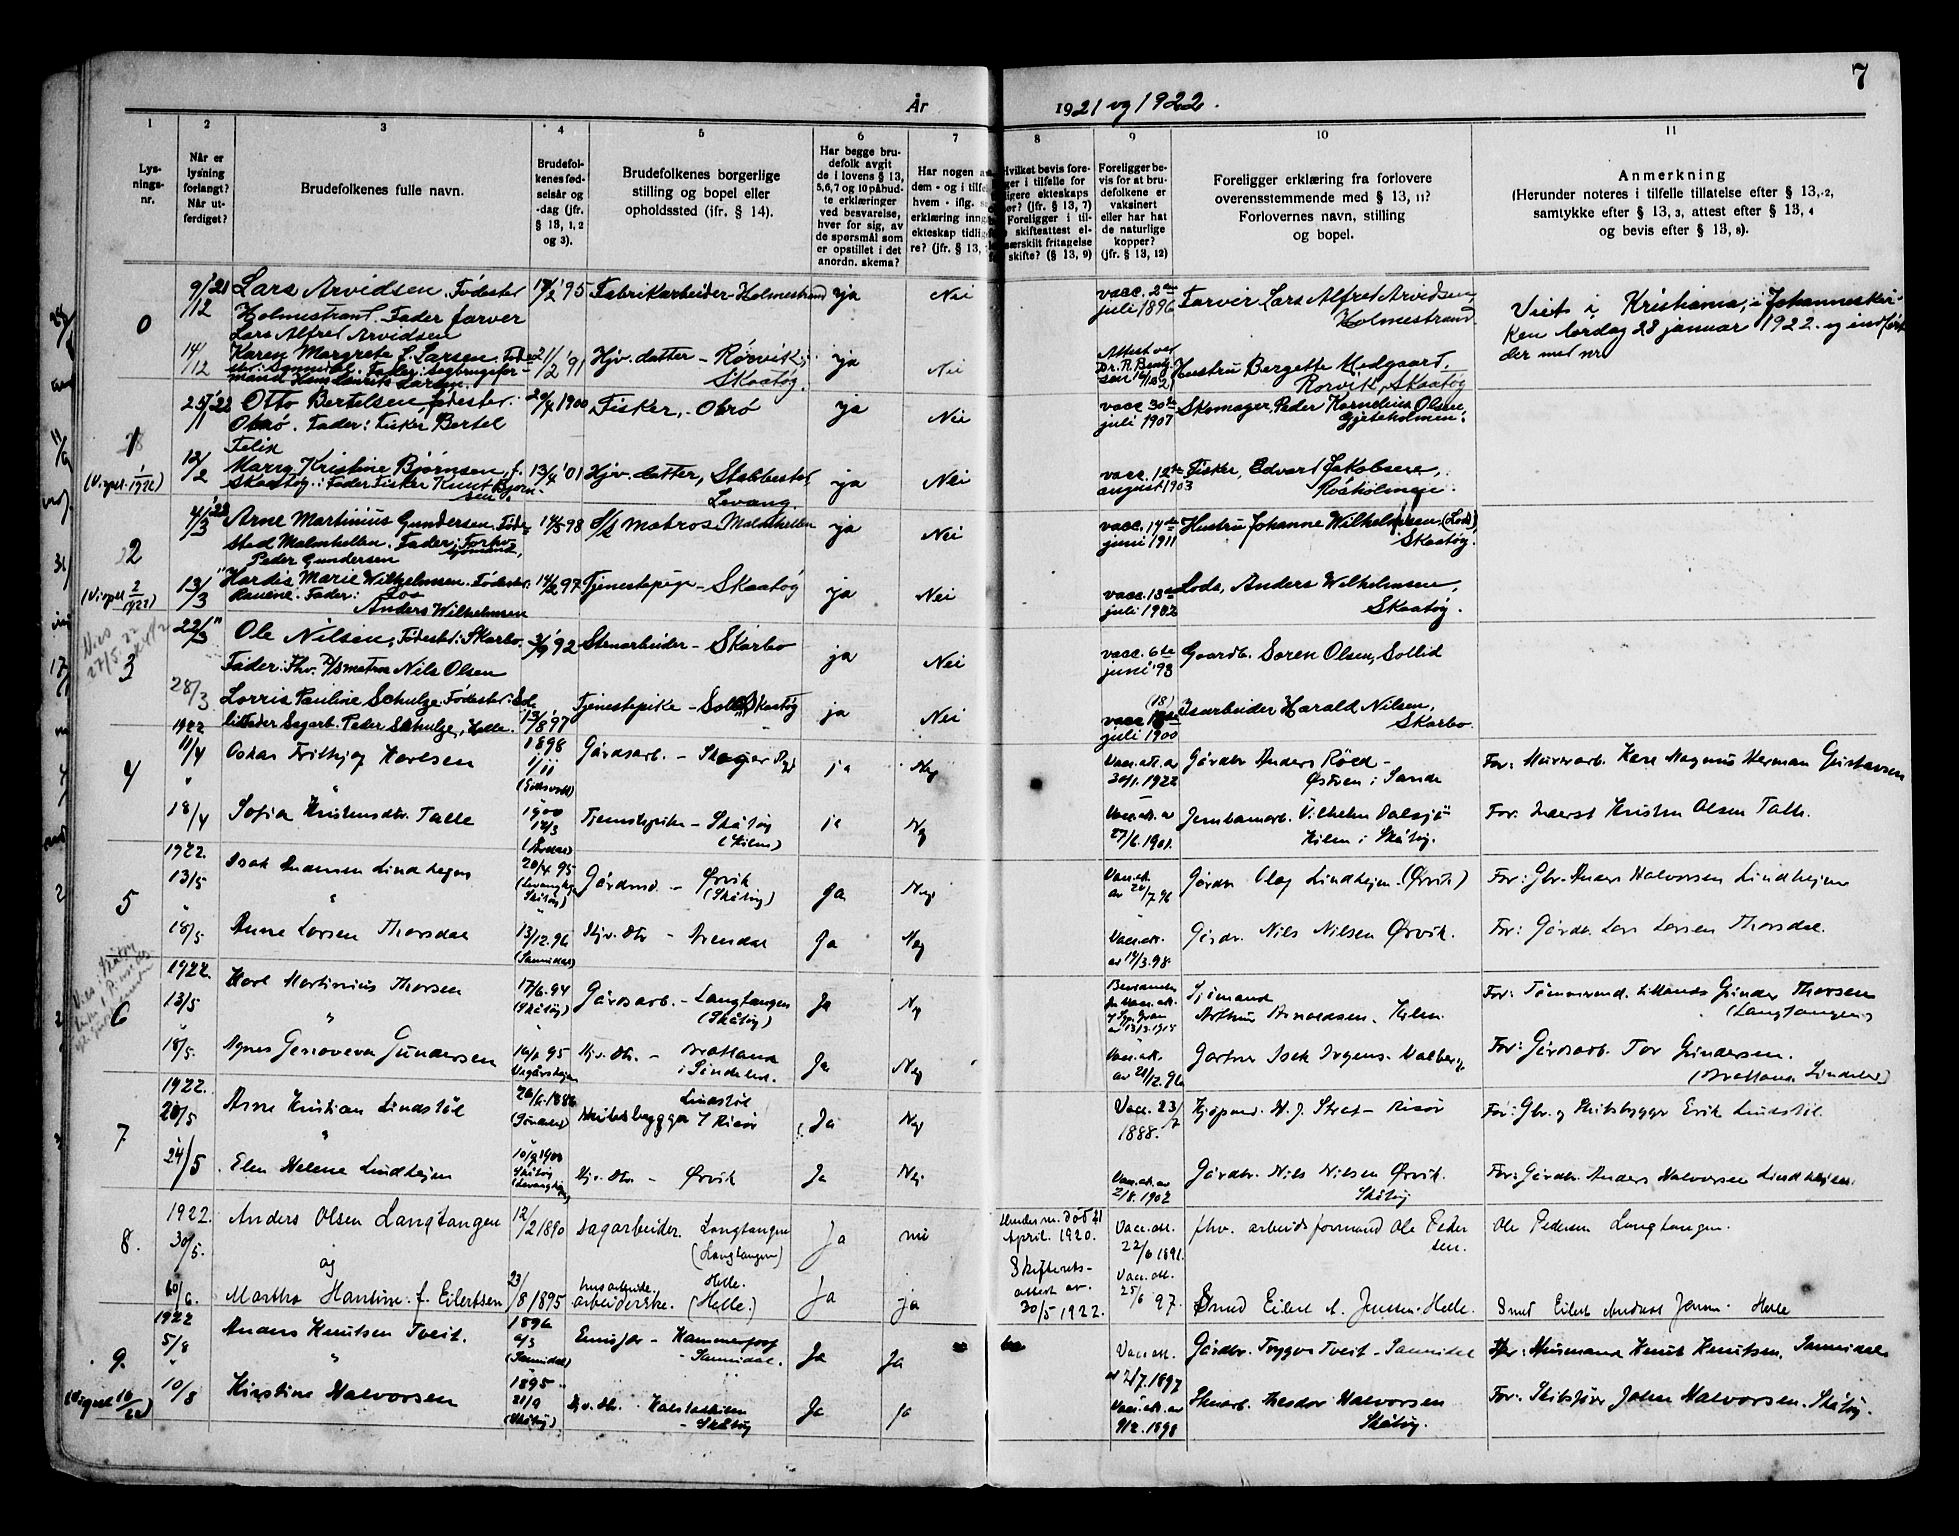 7
År 1921 og 1922.
1 2 3 4 5 6 7 8 9 10 11
Lys-
nings-
nr.
Når er
lysning
forlangt?
Når ut-
ferdiget?
Brudefolkenes fulle navn.
Brudefol-
kenes fød-
selsår og
-dag (jfr.
§ 13, 1, 2
og 3).
Brudefolkenes borgerlige
stilling og bopel eller
opholdssted (ifr. § 14).
Har begge bru-
defolk avgit
de i lovens § 13,
5,6,7 og 10 påbud-
te erklæringer
ved besvarelse,
hver for sig, av
de spørsmål som
er opstillet i det
anordn. skema?
Har nogen a
dem - og i tilfe
hvem - iflg. s
erklæring inng
ekteskap tidli
re? (jfr. § 13,
Hvilket bevis fore-
ger i tilfelle for
ligere ekteskaps
ør? (jfr. § 13, 7)
Foreligger i til-
skifteattest el-
særskilt fritagelse
skifte? (§ 13, 9)
Foreligger be-
vis for at bru-
defolkene er
vaksinert
eller har hat
de naturlige
kopper?
(jfr. § 13, 12)
Foreligger erklæring fra forlovere
overensstemmende med § 13, 11?
Forlovernes navn, stilling
og bopel.
Anmerkning
(Herunder noteres i tilfelle tillatelse efter § 13, 2,
samtykke efter § 13, 3, attest efter § 13, 4
og bevis efter § 13, 8).
0
9/12 21
Lars Arvidsen. Fødested
Holmestrand. Fader farver
Lars Alfred Arvidsen
'95
Fabrikarbeider Holmestrand
ja
Nei
vacc. 2den
juli 1896
Farver Lars Alfred Arvidsen,
Holmestrand.
Viet i Kristiania, i Johanneskir-
ken lørdag 28 januar 1922 og indført
der med nr
14/12
Karen Margrete L. Larsen. Føde-
sted: Sannidal. Fader: sagbrugsfor-
mand Hans Henrik Larsen.
21/2 '91
Hjv. datter - Rørvik,
Skaatøy.
ja
Nei
Attest ved
Dr. R. Bentz-
sen
Hustru Bergette Medgaard,
Rørvik, Skaatøy
1
25/1 22
Otto Bertelsen fødested.
Obrø. Fader: Fisker Bertel
Felix
1900
Fisker, - Obrø
ja
Nei
vacc. 30te
juli 1907
Skomager Peder Kornelius Olsen,
Gjeteholmen.
12/2
Marry Kristine Bjørnsen, f.
Skaatøy. Fader Fisker Knut Bjørn-
sen.
13/4 '01
Hjv. datter, Stabbestad,
Levang.
ja
Nei
vacc. 12te
august 1903
Fisker, Edvard Jakobsen,
2
4/3 '22
Arne Martinius Gundersen. Føde-
sted Malmhellen. Fader: Forhv.
sjømand,
Peder Gundersen
14/5 98
matros Malmhellen
ja
Nei
vacc. 14de
juni 1911
Hustru Johanne Wilhelmsen (Lods)
Skaatøy.
13/3
Hardis Marie Wilhelmsen. Fødested:
Fader: Los
Anders Wilhelmsen
97
Tjenestepige - Skaatøy
ja
Nei
vacc. 13de
juli 1902
Lods, Anders Wilhelmsen,
Skaatøy.
3
22/3 "
Ole Nilsen, Fødested: Skarbo.
Fader: Fhv. matros Nils Olsen
92
Stenarbeider - Skarbo
ja
Nei
vacc. 6te
juni '93
Gaardb. Søren Olsen, Sollid
28/3
Lorris Pauline Schulze Fødested:
Fader Sagarb. Peder Schulze, Helle.
13/8 '97
Tjenestepike - Skaatøy
ja
Nei
(18)
vacc.
juli 1900
Isarbeider Harald Nilsen,
Skarbo
4
1922
11/4
Oskar Fritjof Karlsen
1898
1/11
(Eidsvold)
Gårdsarb. -
ja
Nej
Vacc. att. av
30/1. 1922
Gårdbr Anders Røed -
i Sande
For: Murerarb. Karl Magnus Herman Gustavsen
"
18/4
Sofia Kristensdtr. Talle
1900
14/3
Tjenestepike - Skåtøy
(Kilen)
ja
Nej
Vacc. att. av
27/6. 1901.
Jernbanearb. Vilhelm Dalsjø
Kilen i Skåtøy.
For: Inderst Kristen Olsen Talle.
5
1922.
13/5
Isak Andersen Lindhejen
"
20/4 95
(Levanghej.
Skåtøy)
Gårdmd. - Ørvik
(Skåtøy)
Ja
Nej
Vacc. att.
av 20/7. 96
Gårdbr Olaf Lindhejen (Ørvik)
For: Gbr. Anders Halvorsen Lindhejen
18/5
Anne Larsen Thorsdal
13/12. 96
(Sannidal)
Hjv. Dtr - Arendal
Ja
Nej
Vacc. att.
av 14/3. 98
Gårdbr. Nils Nilsen Ørvik.
For: Gårdbr. Lars Larsen Thorsdal.
6
1922.
13/5
Karl Martinius Thorsen
"
17/6. 94
(Skåtøy)
Gårdsarb. - Langtangen
(Skåtøy)
Ja
Nej
Sjømand
Arthur Arnoldsen. Kilen
For: Tømmermand Gunder Thorsen
(Langtangen)
18/5.
Agnes Genoveva Gundersen
95
Vegårshejen
Hjv. Dtr. - Brattland
i Søndeled.
Ja
Nej
Vacc. att.
av 21/12. 96
Gartner Isak Irgens.
For: Gårdsarb. Tor Gundersen.
(Brattland. Søndeled)
7
1922.
20/5
Arne Kristian Lindstøl
"
1886
(Søndeled)
Lindstøl
Skibsbygger / Risør
Ja
Nej
Vacc. 23/7
1888.
Kjøpmd. N. J. Stræt - Risør
For: Gbr. og Skibsbygger Erik Lindstøl.
24/5
Elen Helene Lindhejen
1900
Skåtøy
(Levanghejen)
Hjv. Dtr. - Ørvik
Ja
Nej
Vacc. att. av
2/8. 1902
Gårdbr. Nils Nilsen Ørvik.
Skåtøy
For: Gårdbr. Anders Halvorsen Lindhejen.
8.
1922.
30/5.
Anders Olsen Langtangen
og
12/2 1890
Sagarbeider. Langtangen
(Langtangen)
Ja
nei
Hendes m. død 21
April. 1920.
Skifteretts-
attest av
30/5 1922.
Vacc. att.
22/6 1891.
fhv. arbeidsformand Ole Peder
sen.
Ole Pedersen Langtangen.
10/6.
Martha Hantine f. Eilertsen
23/8 1895
husarbeide.
arbeiderske. Helle.
(Helle.)
Ja
ja
Vacc. att.
25/6 97.
Smed Eilert A. Jensen. Helle.
Smed Eilert Andreas Jensen. Helle
9.
1922
5/8
Anders Knutsen Tveit.
"
1896
4/3
(Sannidal)
Ja
Ja
Vacc. att.
av 21/7. 1897
Gårdbr. Trygve Tveit - Sannidal
For: Husmand Knut Knutsen, Sannidal
10/8
Kirstine Halvorsen
1895
21/9
(Skåtøy)
Hjv. Dtr. - Skåtøy
Ja
ja
Vacc. att. av
9/12. 1898
Stenarb. Theodor Halvorsen
Skåtøy.
For: Skibsfører Johan Halvorsen. Skåtøy.